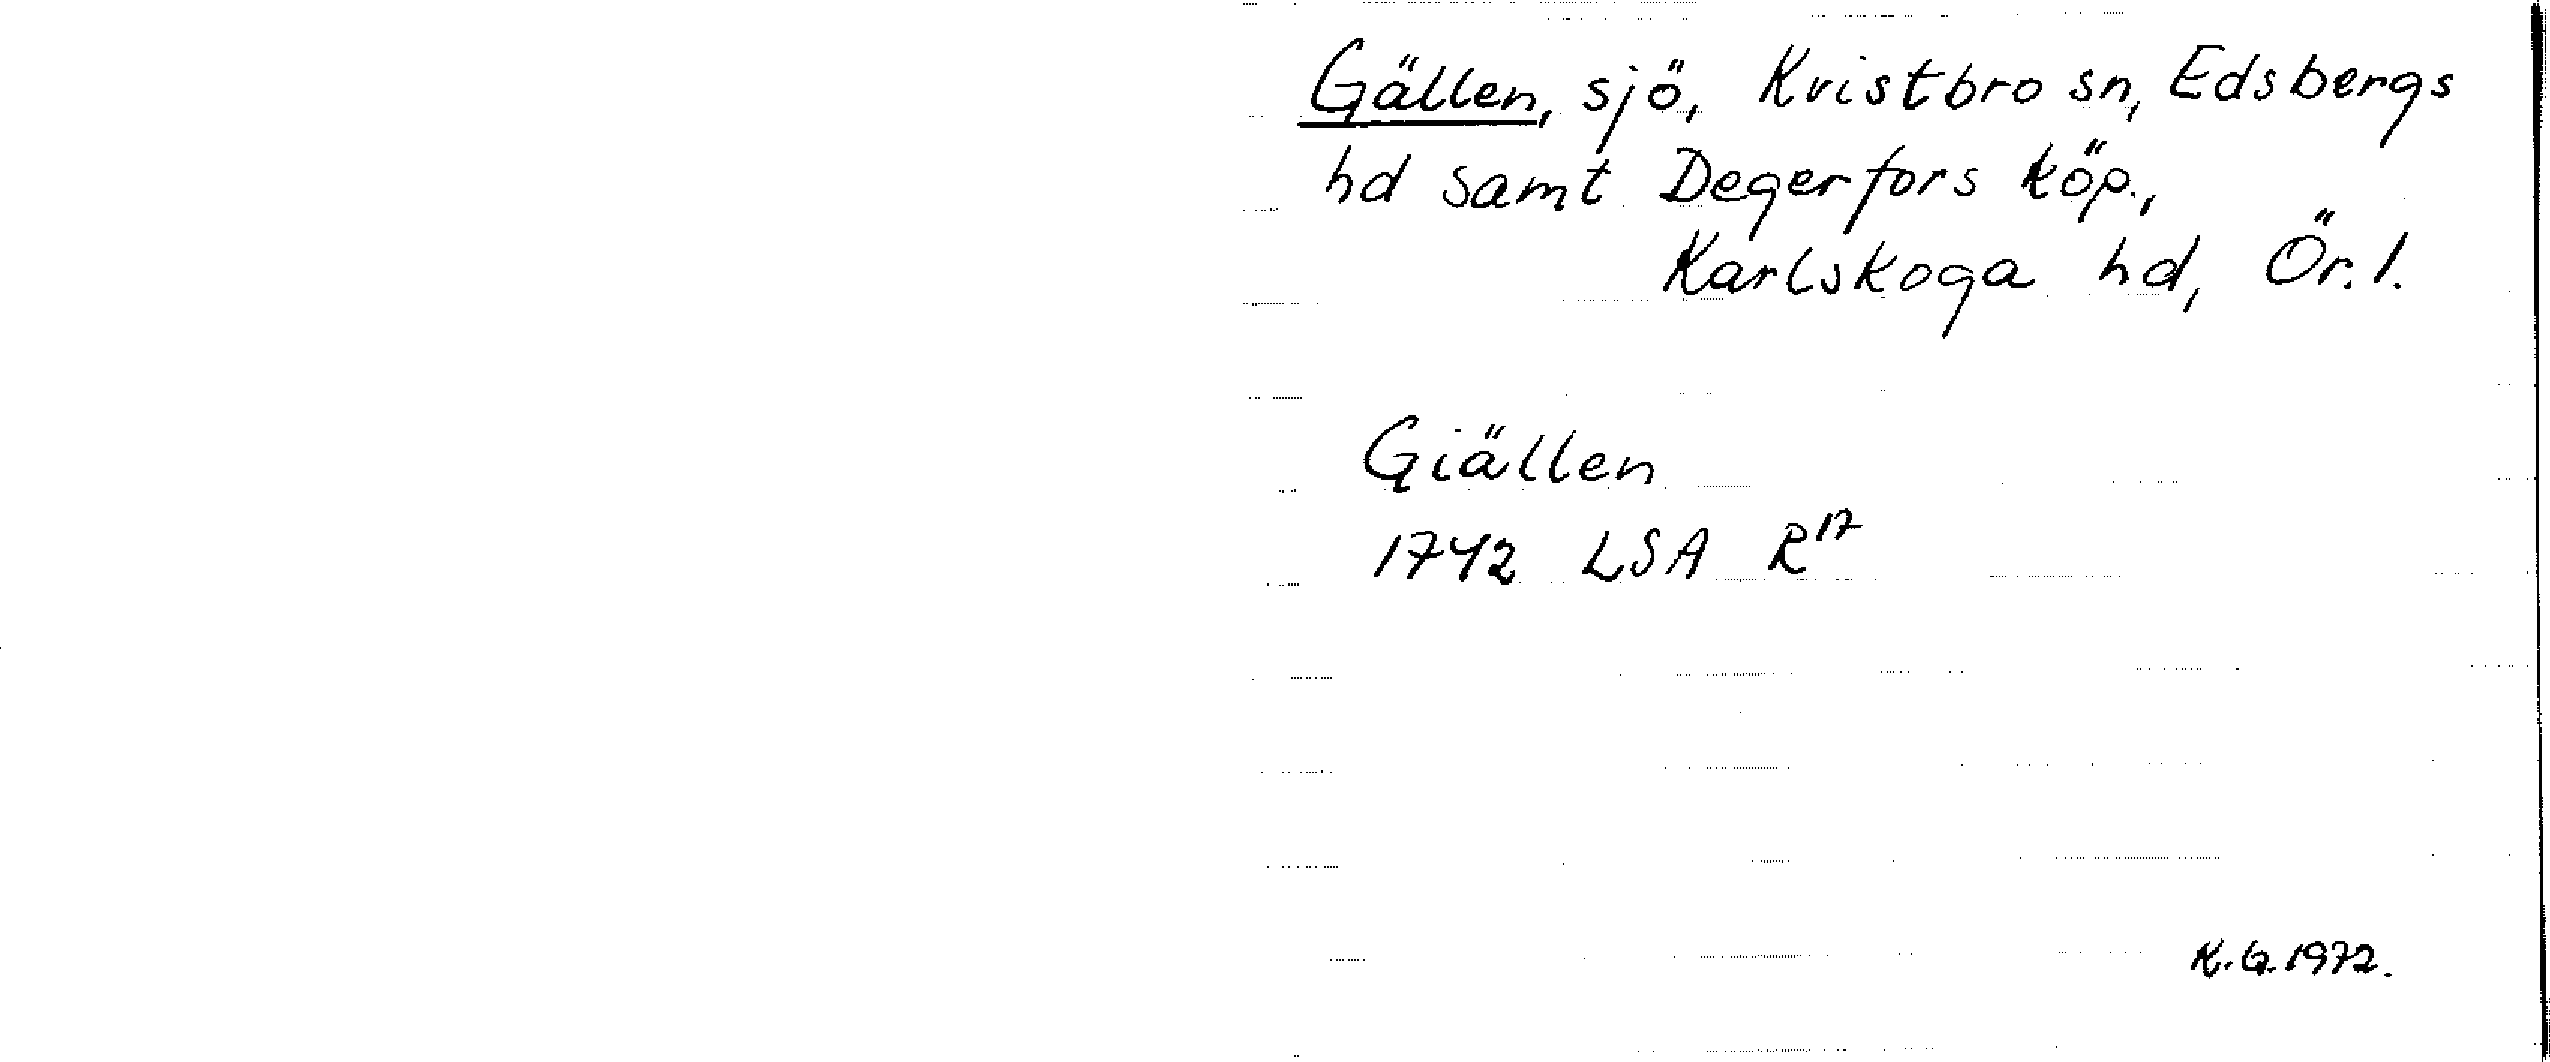 Gällen, sjö, Kvistbro sn, Edsbergs
hd samt Degerfors köp.,
Karlskoga hd, Ör. l.
Giällen
1742 LSA R17
K.G. 1972.